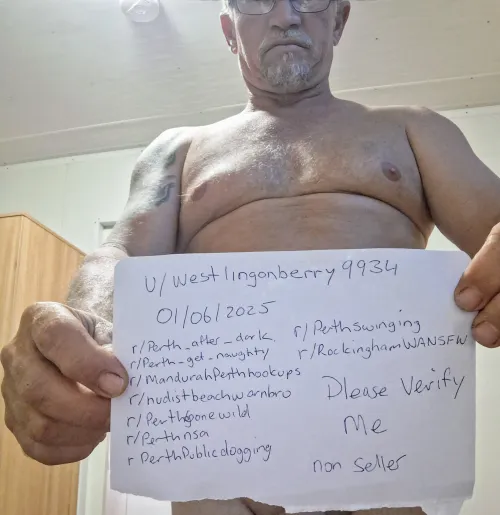 u/westlingonberry9934
01/06/2025
r/Perth_after_dark
r/Perth_get_naughty
r/MandurahPerthhookups
r/nudistbeachwarnbro
r/Perthgonewild
r/Perthnsa
r PerthPublicdogging
r/Perthswinging
r/RockinghamWANSFW
Please Verify
Me
non seller